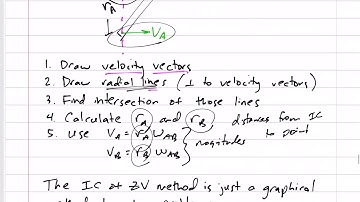 r_A
V_A
1. Draw velocity vectors
2. Draw radial lines (⊥ to velocity vectors)
3. Find intersection of those lines
4. Calculate r_A and r_B distances from IC
5. Use V_A = r_A ω_AB } magnitudes to point
V_B = r_B ω_AB
The IC of ZV method is just a graphical